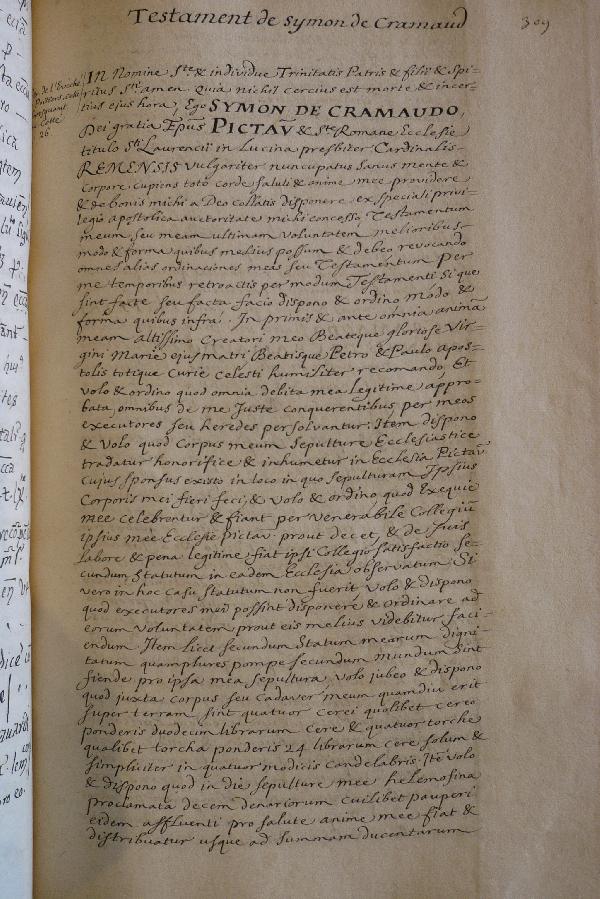 Testament de Symon de Cramaud
309
IN Nomine Ste & individue Trinitatis Patris & filii & Spi-
ritus Sti amen. Quia nichil cercius est morte & incer-
tius ejus hora, Ego SYMON DE CRAMAUDO,
Dei gratia Epūs PICTAV̄ & Ste Romane Ecclesie
titulo Sti Laurencii in Lucina presbiter Cardinalis.
REMENSIS vulgariter nuncupatus sanus mente &
corpore cupiens toto corde saluti & anime mee providere
& de bonis michi a Deo collatis disponere ex speciali privi-
legio apostolica auctoritate michi concesso, Testamentum
meum seu meam ultimam voluntatem melioribus
modo & forma quibus melius possum & debeo revocando
omnes alias ordinaciones meas seu Testamentum per
me temporibus retroactis per modum Testamenti si que
sint facte seu facta facio dispono & ordino modo &
forma quibus infra. In primis & ante omnia animā
meam altissimo Creatori meo Beateque gloriose Vir-
gini Marie ejus matri Beatisque Petro & Paulo apos-
tolis totique Curie celesti humiliter recomando, Et
volo & ordino quod omnia debita mea legitime appro-
bata, omnibus de me Juste conquerentibus per meos
executores seu heredes persolvantur. Item dispono
& volo quod Corpus meum Sepulture Ecclesiastice
tradatur honorifice & inhumetur in Ecclesia Pictav̄
cujus sponsus existo in loco in quo sepulturam Ipsius
Corporis mei fieri feci, & volo & ordino quod Exequie
mee celebrentur & fiant per venerabile Collegiū
ipsius mee Ecclesie Pictav. prout decet, & de suis
labore & pena legitime fiat ipsi Collegio satisfactio se-
cundum Statutum in eadem Ecclesia observatum. Si
vero in hoc casu statutum non fuerit volo & dispono
quod executores mei possint disponere & ordinare ad
eorum voluntatem prout eis melius videbitur faci-
endum. Item licet secundum Statum mearum digni-
tatum quamplures pompe secundum mundum sint
fiende pro ipsa mea sepultura, volo jubeo & dispono
quod juxta corpus seu Cadaver meum quamdiu erit
super terram sint quatuor cerei quolibet cereo
ponderis duodecim librarum cere & quatuor torche
qualibet torcha ponderis 24 librarum cere solum &
simpliciter in quatuor modicis candelabris. Itē volo
& dispono quod in die sepulture mee helemosina
proclamata decem denariorum cuilibet pauperi
eidem affluenti pro salute anime mee fiat &
distribuatur usque ad summam ducentarum